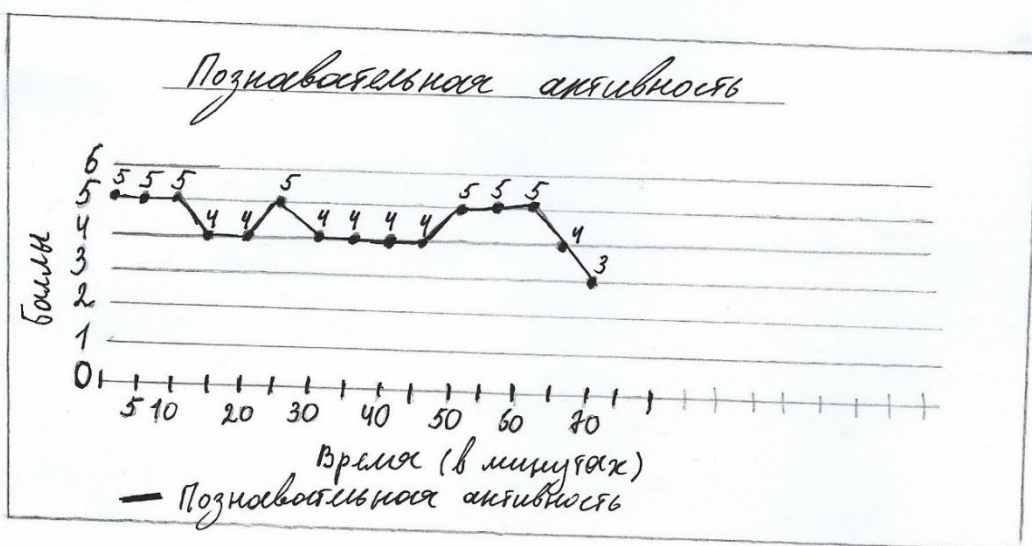 Познавательная активность
6
5
4
3
2
1
0
Баллы
5 5 5 4 4 5 4 4 4 4 5 5 5 4 3
5 10 20 30 40 50 60 70
Время (в минутах)
Познавательная активность